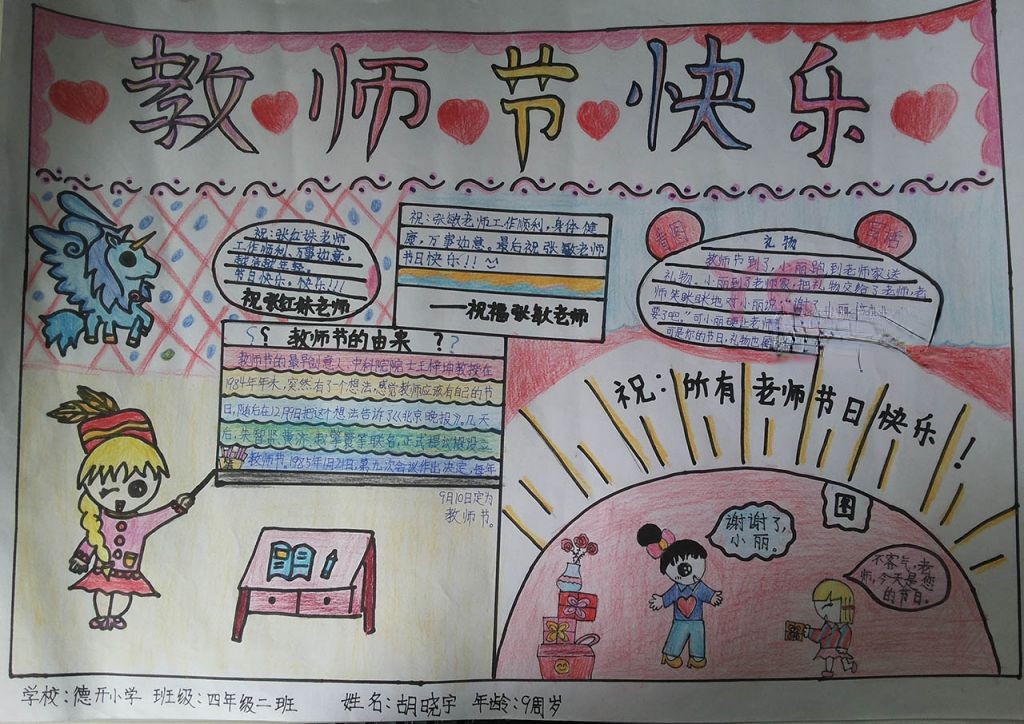 教师节快乐
祝:张红妹老师
工作顺利,万事如意,
越活越年轻。
节日快乐。快乐!!!
祝张红妹老师
祝:张敏老师工作顺利,身体健
康,万事如意。最后祝张敏老师
节日快乐!!!
——祝福张敏老师
看图
写话
礼物
教师节到了,小丽跑到老师家送
礼物。小丽到了老师家,把礼物交给了老师,老
师笑眯眯地对小丽说:“谢了小丽
要了吧。”可小丽硬让老师
可是你的节日,礼物也
?? 教师节的由来 ??
教师节的最早创意人,中科院院士王梓坤教授在
1984年年末,突然有了个想法,感觉教师应该有自己的节
日,随后在12月9日把这个想法告诉了《北京晚报》。几天
后,朱智贤,黄济,赵擎寰等联名,正式提议设立
教师节。1985年1月21日,第九次会议作出决定,每年
9月10日定为
教师节。
祝:所有老师节日快乐!
图
谢谢了,
小丽。
不客气,老
师,今天是您
的节日。
学校:德开小学 班级:四年级二班 姓名:胡晓宇 年龄:9周岁